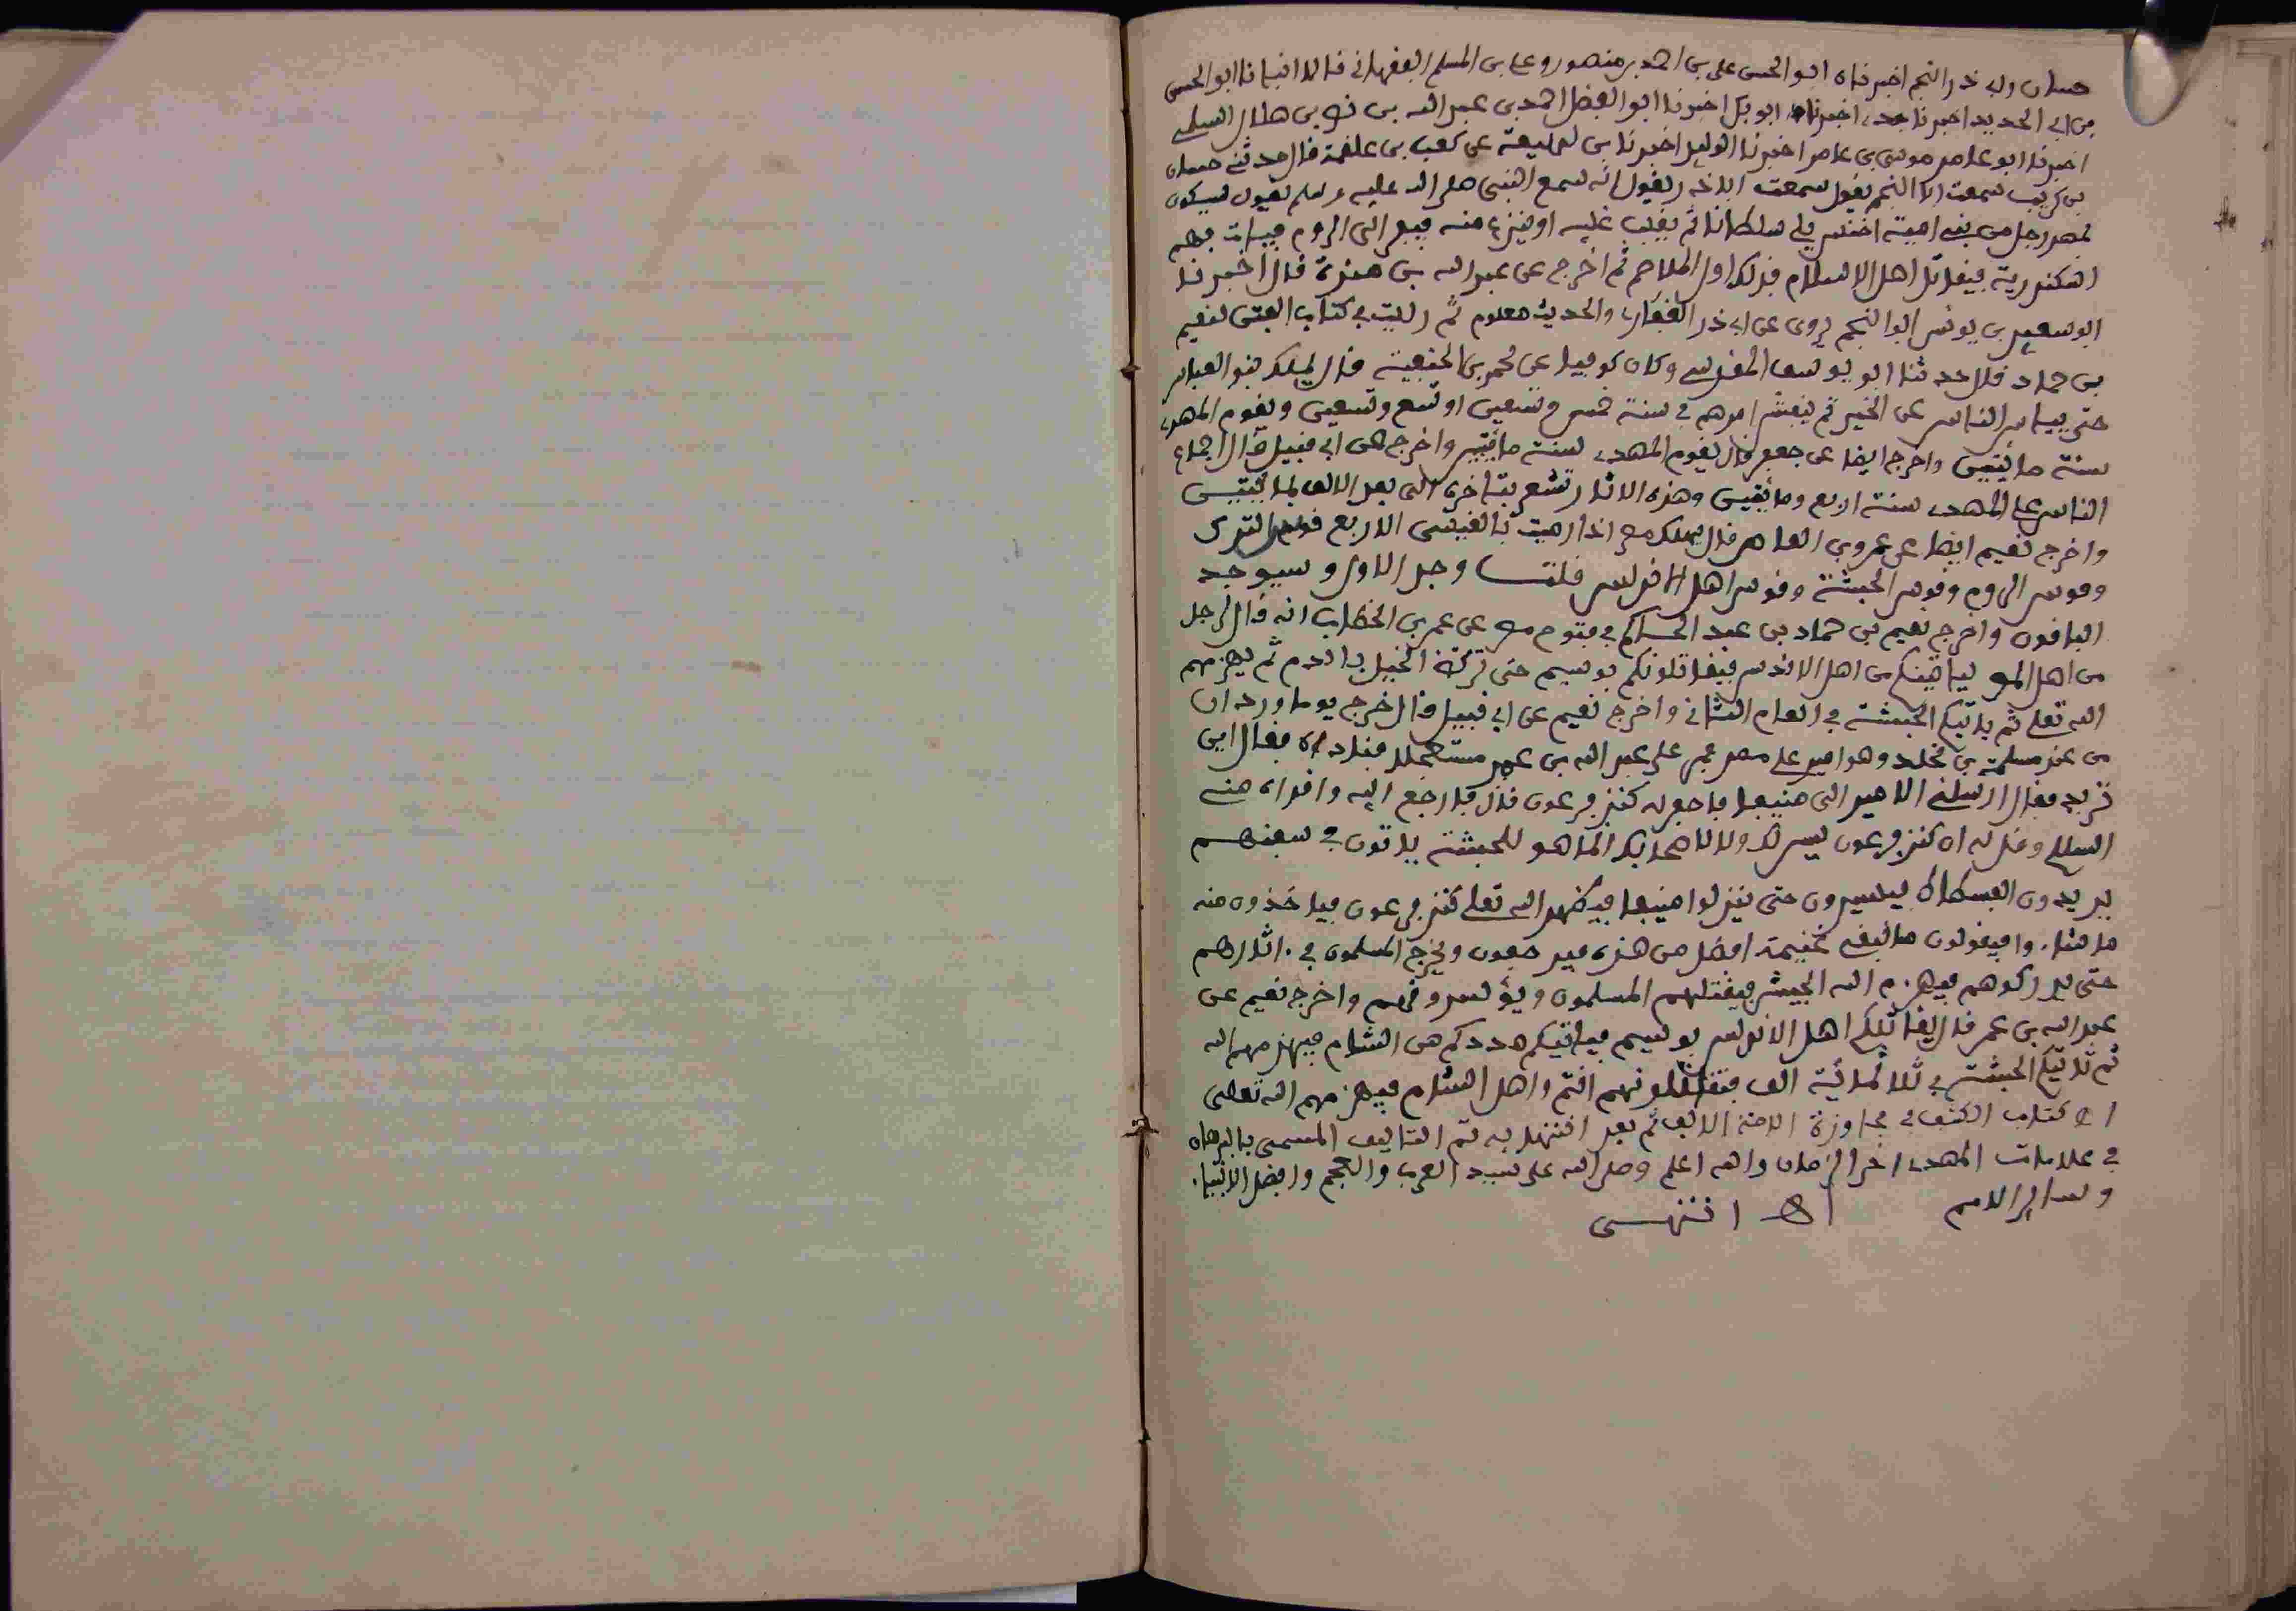 حسان وابى ذر ابو النجم اخبرناه ابو الحسن على بن احمد بن منصور وعلى بن المسلم الفقيهان قالا انبانا ابو الحسن
بن ابى الحديد اخبرنا جدى اخبرنا ابو بكر اخبرنا ابو الفضل احمد بن عبد الله بن نصر بن هلال السلمى
اخبرنا ابو عامر موسى بن عامر اخبرنا الوليد اخبرنا بن لهيعة عن كعب بن علقمة قال حدثنى حسان
بن كريب سمعت ابا النجم يقول سمعت ابا ذر يقول انه سمع النبى صلى الله عليه وسلم يقول سيكون
بمصر رجل من بنى امية اخنس يلى سلطانا ثم يغلب عليه او ينزع منه فيفر الى الروم فيات بهم
اسكندرية فيقاتل اهل الاسلام فذلك اول الملاحم ثم اخرج عن عبد الله بن منده قال اخبرنا
ابو سعيد بن يونس ابو النجم يروى عن ابى ذر الغفارى والحديث معلوم ثم رايت فى كتاب الفتن لنعيم
بن حماد قال حدثنا ابو يوسف المقدسى وكان كوفيا عن محمد بن الحنفية قال يملك بنو العباس
حتى يياس الناس عن الخير ثم يتعشر امرهم فى سنة خمس وتسعين او تسع وتسعين ويقوم المهدى
سنة مائتين واخرج ايضا عن جعفر قال يقوم المهدى سنة مائتين واخرج عن ابى قبيل قال اجتماع
الناس على المهدى سنة اربع ومائتين وهذه الاثار تشعر بتاخره الى بعد الالف بمائتين
واخرج نعيم ايضا عن عمرو بن العاص قال تهلك مصر اذا رميت بالقسى الاربع قوس الترك
وقوس الروم وقوس الحبشة وقوس اهل الاندلس قلت وجد الاول وسيوجد
الباقون واخرج نعيم بن حماد بن عبد الحكم فى فتوح مصر عن عمر بن الخطاب انه قال لرجل
من اهل مصر لياتينكم من اهل الاندلس فيقاتلونكم بوسيم حتى تركض الخيل بالدم ثم يهزمهم
الله تعلى ثم ياتيكم الحبشة فى العام الثانى واخرج نعيم عن ابى قبيل قال خرج يوما وردان
من عند مسلمة بن مخلد وهو امير على مصر فمر على عبد الله بن عمر مستعجلا فناداه فقال اين
تريد فقال ارسلنى الامير الى منيعا فاحفر له كنز فرعون قال فارجع اليه واقراه منى
السلام وقل له ان كنز فرعون ليس لك ولا لاصحابك انما هو للحبشة ياتون فى سفنهم
يريدون الفسطاط فيسيرون حتى ينزلوا منيعا فيظهر الله تعلى كنز فرعون فياخذون منه
ما شاءوا فيقولون ما نبغى غنيمة افضل من هذه فيرجعون ويخرج المسلمون فى اثارهم
حتى يدركوهم فيهزم الله الجيش فيقتلهم المسلمون ويؤسرونهم واخرج نعيم عن
عبد الله بن عمر قال يقاتلكم اهل الاندلس بوسيم فياتيكم مددكم من الشام فيهزمهم الله
ثم تاتيكم الحبشة فى ثلاثمائة الف فتقاتلونهم انتم واهل الشام فيهزمهم الله تعلى
اه كتاب الكشف فى مجاوزة الامة الالف ثم بعد انتهى به تم التاليف المسمى بالبرهان
فى علامات المهدى اخر الزمان والله اعلم وصلى الله على سيد العرب والعجم وافضل الانبياء
وساير الامم اه انتهى